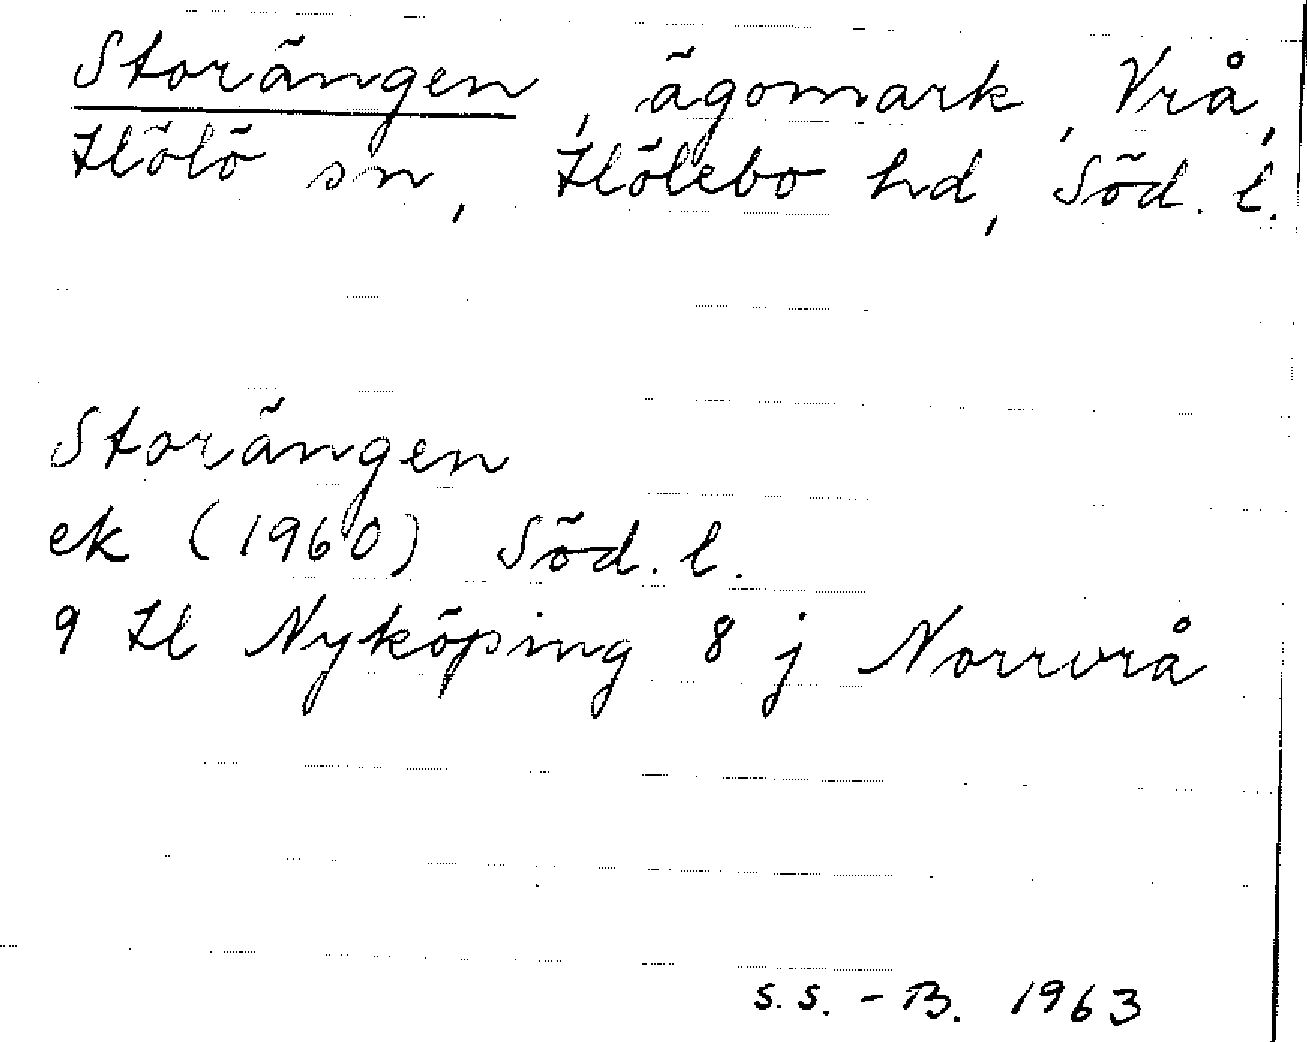 Storängen, ägomark, Vrå,
Hölö sn, Hölebo hd, Söd. l.
Storängen
ek (1960) Söd. l.
9 H l Nyköping 8 j Norrvrå
S.S. - B. 1963